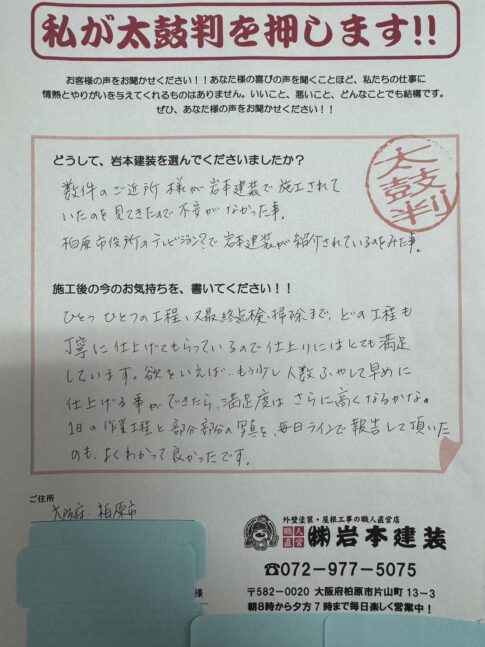 私が太鼓判を押します!!
お客様の声をお聞かせください！！あなた様の喜びの声を聞くことほど、私たちの仕事に
情熱とやりがいを与えてくれるものはありません。いいこと、悪いこと、どんなことでも結構です。
ぜひ、あなた様の声をお聞かせください！！
どうして、岩本建装を選んでくださいましたか？
太鼓判
数件のご近所様が岩本建装で施工されて
いたのを見てきたので不安がなかった事。
柏原市役所のテレビジョン?で岩本建装が紹介されているのをみた事。
施工後の今のお気持ちを、書いてください！！
ひとつひとつの工程、又最終点検、掃除まで、どの工程も
丁寧に仕上げてもらっているので仕上りにはとても満足
しています。欲をいえば…もう少し人数ふやして早めに
仕上げる事ができたら、満足度はさらに高くなるかな。
1日の作業工程と部分部分の写真を、毎日ラインで報告して頂いた
のも、よくわかって良かったです。
ご住所
大阪府 柏原市
様
外壁塗装・屋根工事の職人直営店
職人直営
㈱岩本建装
☎072-977-5075
〒582-0020 大阪府柏原市片山町 13-3
朝8時から夕方7時まで毎日楽しく営業中！